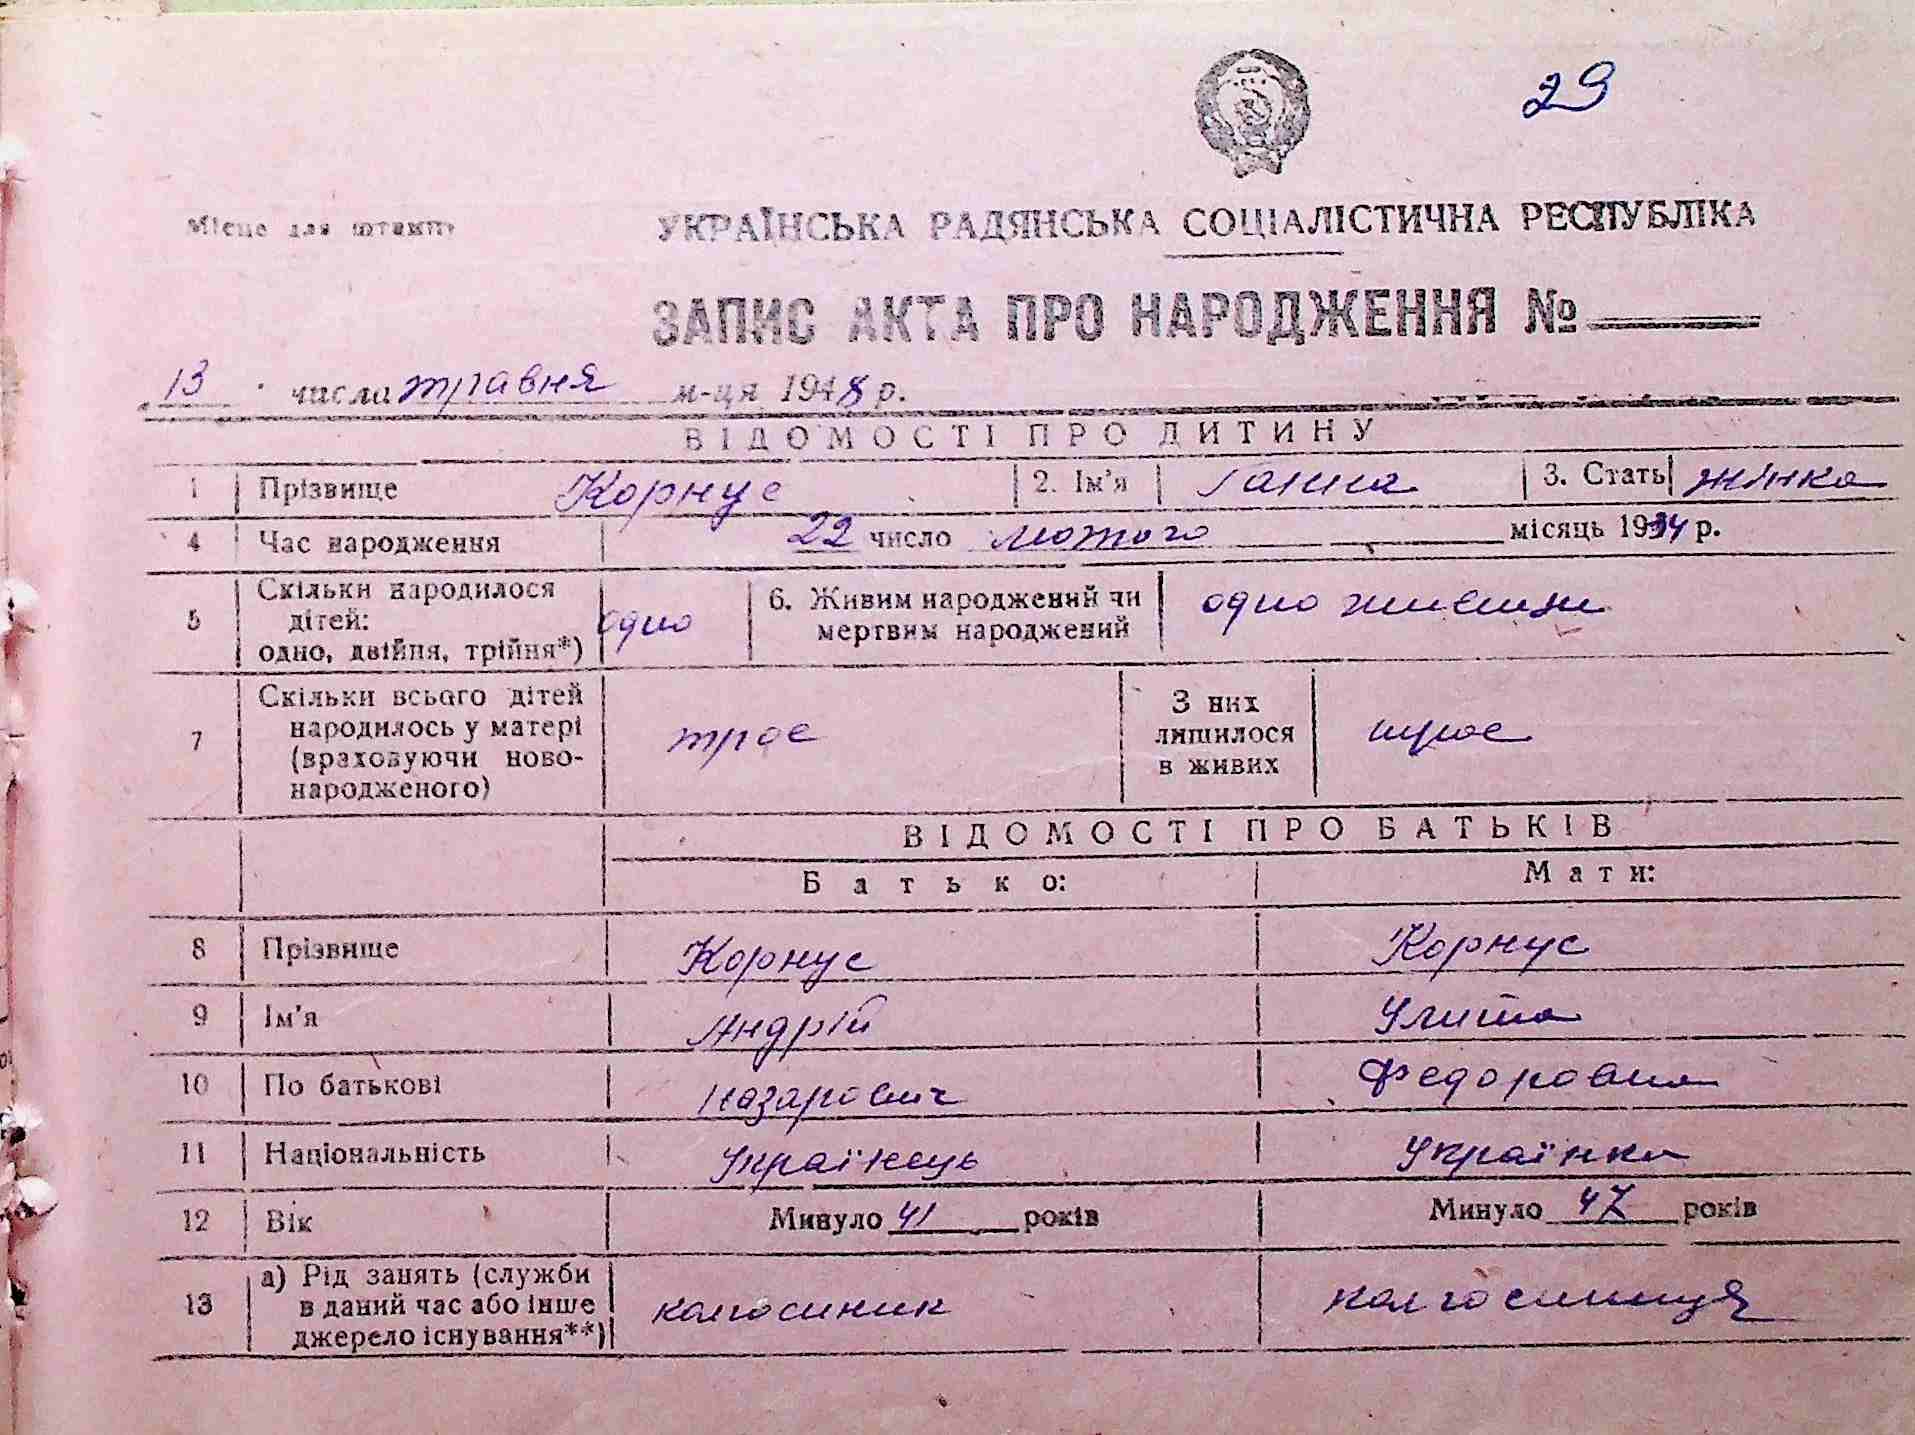 29
Місце для штампу УКРАЇНСЬКА РАДЯНСЬКА СОЦІАЛІСТИЧНА РЕСПУБЛІКА
ЗАПИС АКТА ПРО НАРОДЖЕННЯ №
13 числа травня м-ця 1948 р.
ВІДОМОСТІ ПРО ДИТИНУ
1 Прізвище Корнус 2. Ім'я Ганна 3. Стать жінка
4 Час народження 22 число лютого місяць 1934 р.
5 Скільки народилося дітей: одно, двійня, трійня*) одно 6. Живим народжений чи мертвим народжений одно живим
7 Скільки всього дітей народилось у матері (враховуючи ново-народженого) троє З них лишилося в живих троє
ВІДОМОСТІ ПРО БАТЬКІВ
Батько: Мати:
8 Прізвище Корнус Корнус
9 Ім'я Андрій Улита
10 По батькові Назарович Федоровна
11 Національність Українець Українка
12 Вік Минуло 41 років Минуло 47 років
13 а) Рід занять (служби в даний час або інше джерело існування**) колгоспник колгоспниця